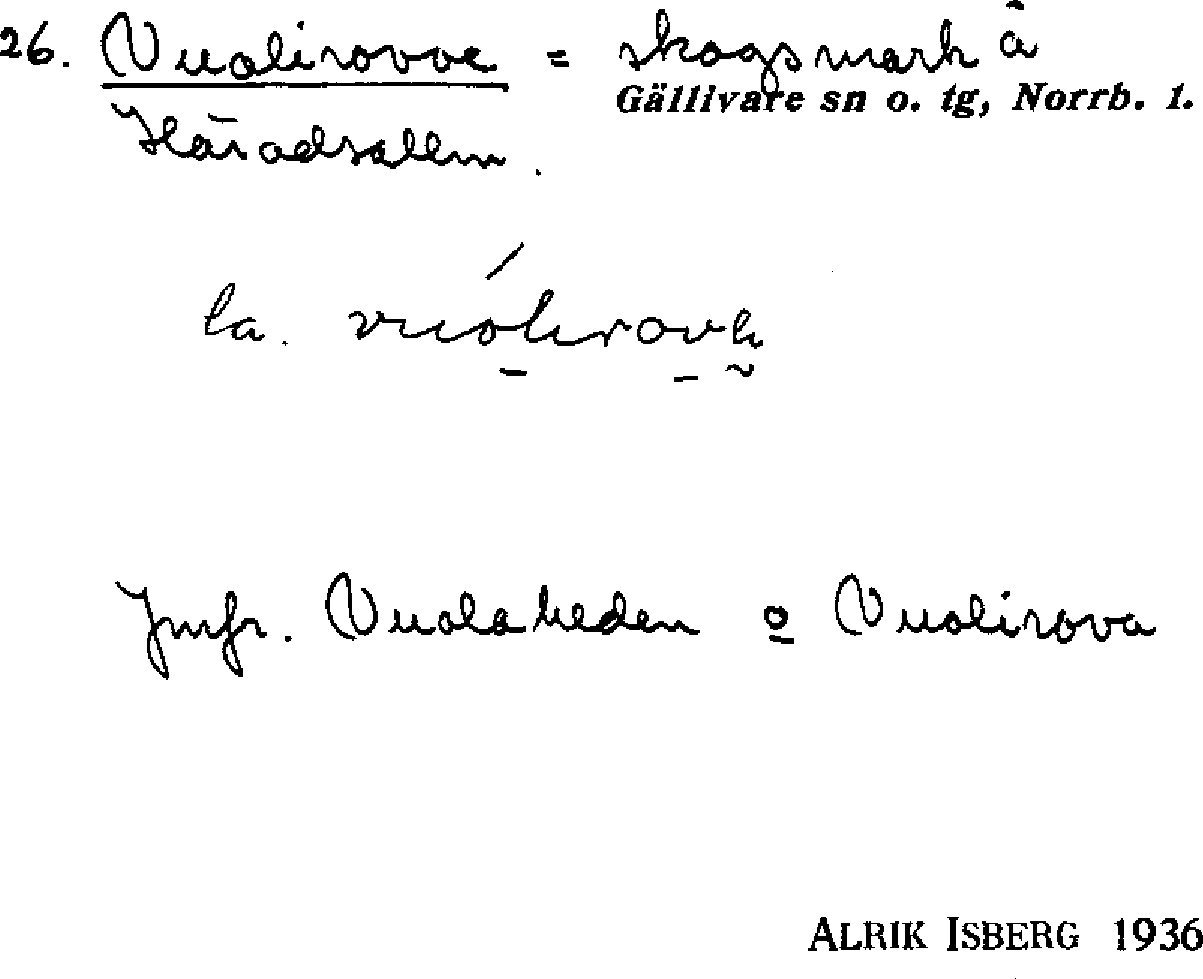 26. Vuolirovve = skogsmark å
Gällivare sn o. tg, Norrb. l.
Häradsallm.
la.
Jmfr. Vuolaheden o Vuolirova
ALRIK ISBERG 1936